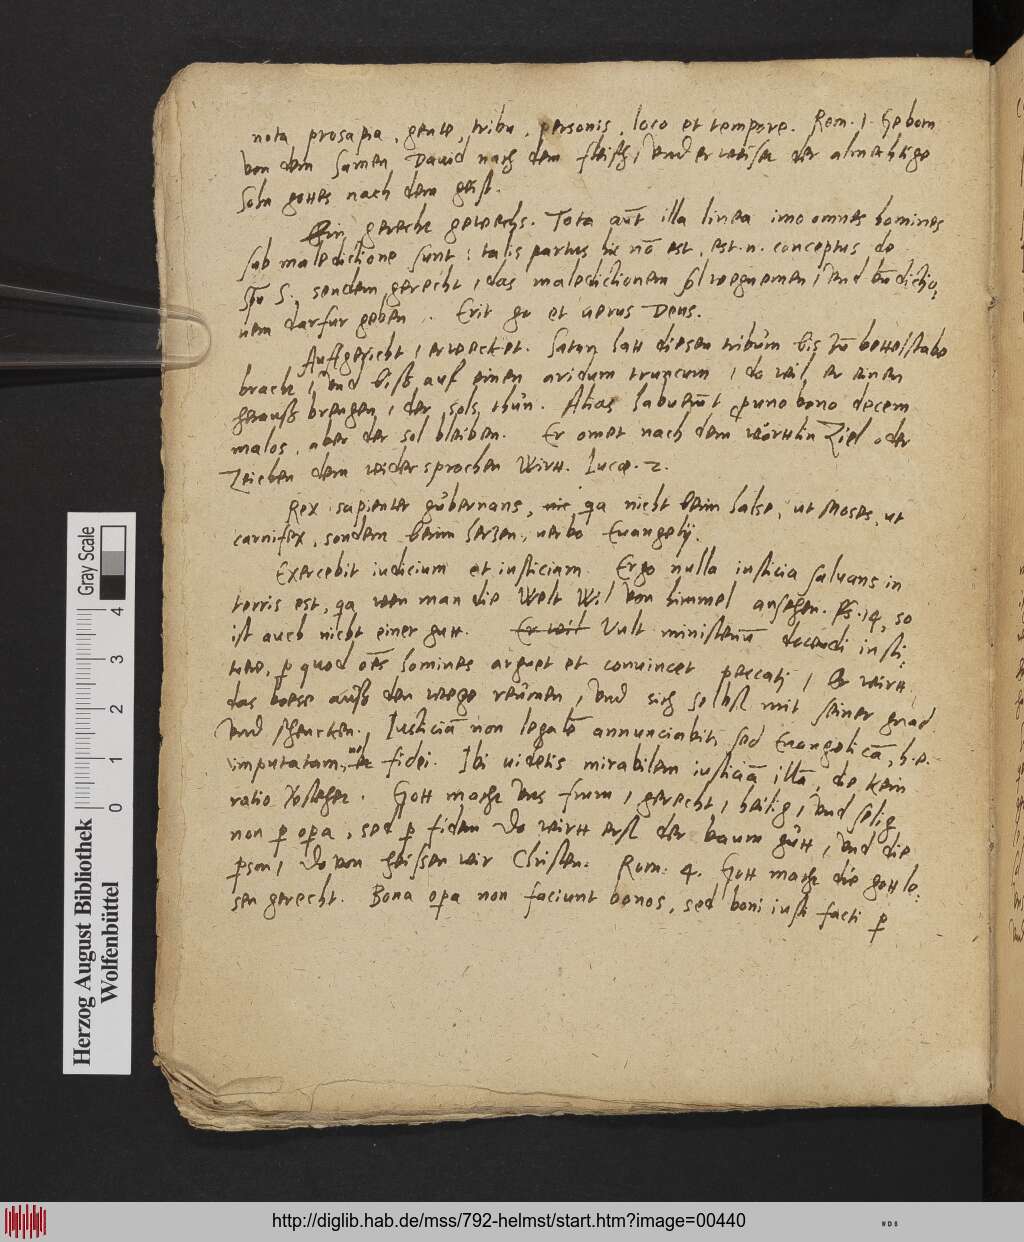 nota prosapia, gente, tribu, personis, loco et tempore. Rom. 1. Geborn
von dem Samen Dauid nach dem fleisch, vnd erweiset der almechtige
Sohn gottes nach dem geist.
Ein gerecht gewechs. Tota aūt illa linea imo omnes homines
sub maledictione sunt: talis partus hic nō est, est .n. conceptus de
spū S., sondern gerecht, das maledictionem sol wegnemen, vnd bn̄dictio,
nem darfur geben. Erit go et uerus Deus.
Auffgericht, erwecket. Satan hatt diesen tribum bis zu bettelstabe
bracht, vnd biß auf einen aridum truncum, do weil er einen
herauß brengen, der sols thun. Alias habuerūt p uno bono decem
malos, aber der sol bleiben. Er omet nach dem Ziel oder
Zeichen dem widersprochen wirtt. Lucæ. 2.
Rex sapienter gubernans, qa nicht beim halse, ut Moses, ut
carnifex, sondern beim herzen, uerbo Euangelij.
Exercebit iudicium et iusticiam. Ergo nulla iusticia saluans in
terris est, qa wen man die Welt wil von himmel ansehen. Ps. 14, so
ist auch nicht einer gutt. Er weil Vult ministeriū docendi insti,
tuere, p quod oēs homines arguet et conuincet peccati, Er wirtt
das boese auß dem wege reumen, vnd sich selbst mit seiner gnad
vnd schencken, Iusticiā non legalē annunciabit, sed Euangelicā, h.e.
imputatam, fidei. Ibi uidetis mirabilem iusticiā illā, die kein
ratio verstehet. Gott macht vns frum, gerecht, heilig, vnd selig
non p opa, sed p fidem do wirtt erst der baum gutt, vnd die
pson, do von heissen wir Christen. Rom. 4. Gott macht die gottlo,
sen gerecht. Bona opa non faciunt bonos, sed boni iusti facti p
Gray Scale
0 1 2 3 4
Herzog August Bibliothek
Wolfenbüttel
http://diglib.hab.de/mss/792-helmst/start.htm?image=00440